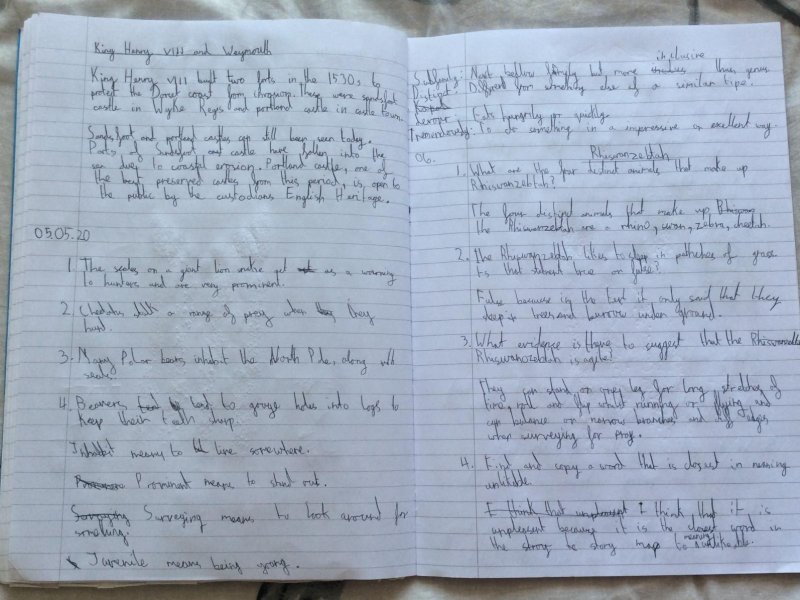 King Henry VIII and Weymouth
King Henry VIII built two forts in the 1530s, to
protect the Dorset coast from invasion. These were sandsfoot
castle in Wyke Regis and portland castle in castle town.
Sandsfoot and portland castles can still been seen today.
Parts of Sandsfoot castle have fallen into the
sea duey to coastal erosion. Portland castle, one of
the best preserved castles from this period, is open to
the public by the custodians English Heritage.
05.05.20
1. The scales on a giant lion snake get as a warning
to hunters and are very prominent.
2. Cheetahs stalk a range of prey when they
hunt.
3. Many Polar bears inhabit the North Pole, along with
seals.
4. Beavers tend to gouge holes into logs to
keep their teeth sharp.
Inhabit means to live somewhere.
Prominent means to stand out.
Surveying means to look around for
something.
Juvenile means being young.
inclusive
Subfamily: Next bellow family but more than genus
Distinct: Different from something else of a similar type.
Eats hungrily or quickly
Tremendously: To do something in a impressive or excellent way.
06.
Rhiswanzebtah
1. What are the four distinct animals that make up
Rhiswanzebtah?
The four distind animals that make up
the Rhiswanzebtah are a rhino, swan, zebra, cheetah.
2. the Rhiswanzebtah likes to sleep in patches of grass
Is that statment true or false?
False because in the text it only said that they
sleep in trees and burrow under ground.
3. What evidence is there to suggest that the
Rhiswanzebtah is agile?
They can stand on one leg for long stretches of
time, roll and flip whilst running or flying and
can balance on narrow branches and cliff edges
when surveying for pray.
4. Find and copy a word that is closest in meaning
unlikable.
I think that unpleasent I think that it is
unpleasent because it is the closest word in
the story to story map to meaning unlikeable.